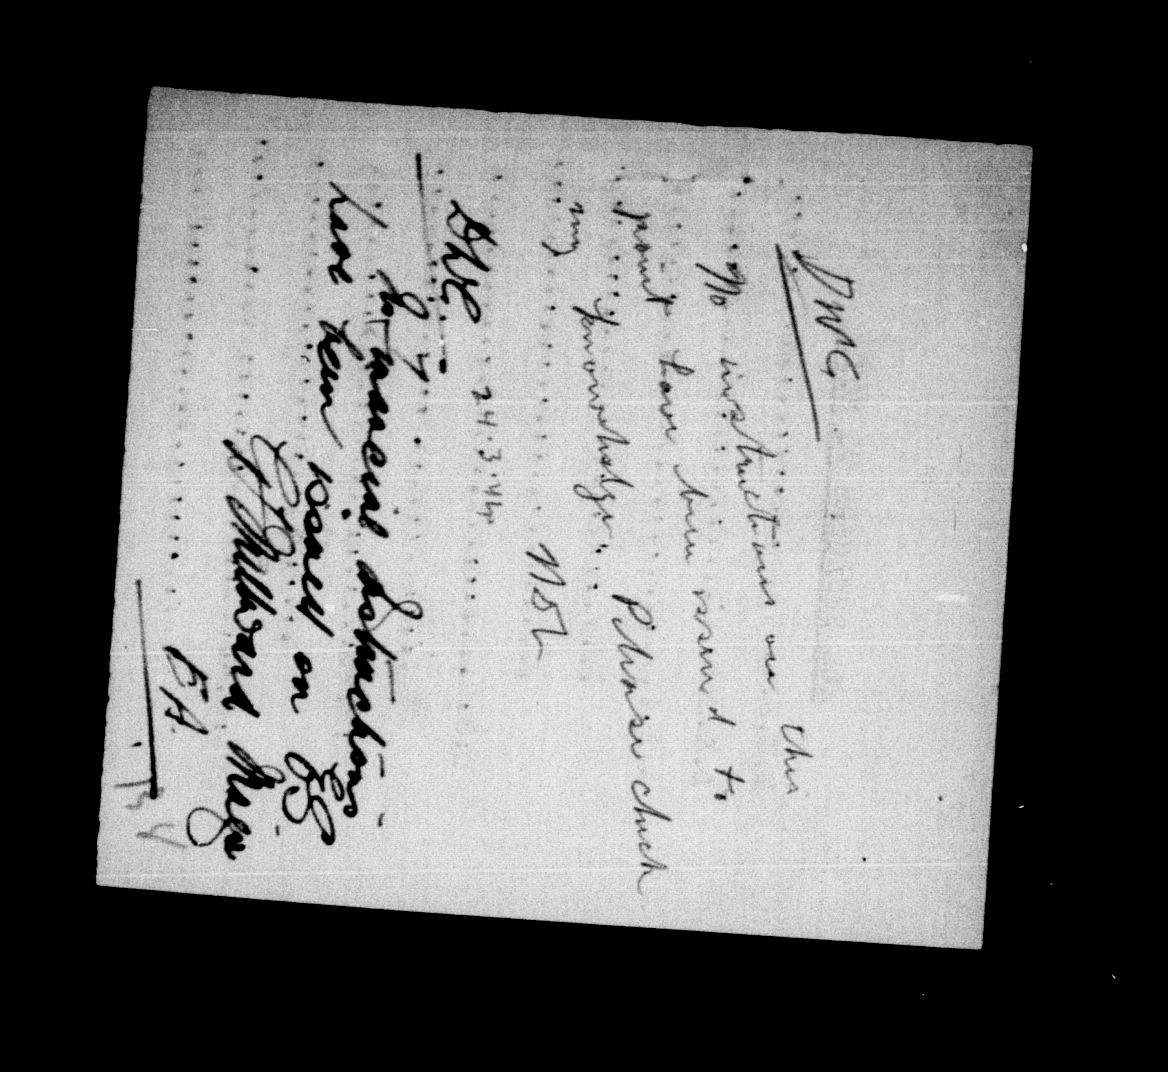 DWG
No instructions on this
point have been issued to
my knowledge. Please check
NDL
24.3.44
DWG
G 4
No financial instructions
have been issued on
G Millward Major
EA